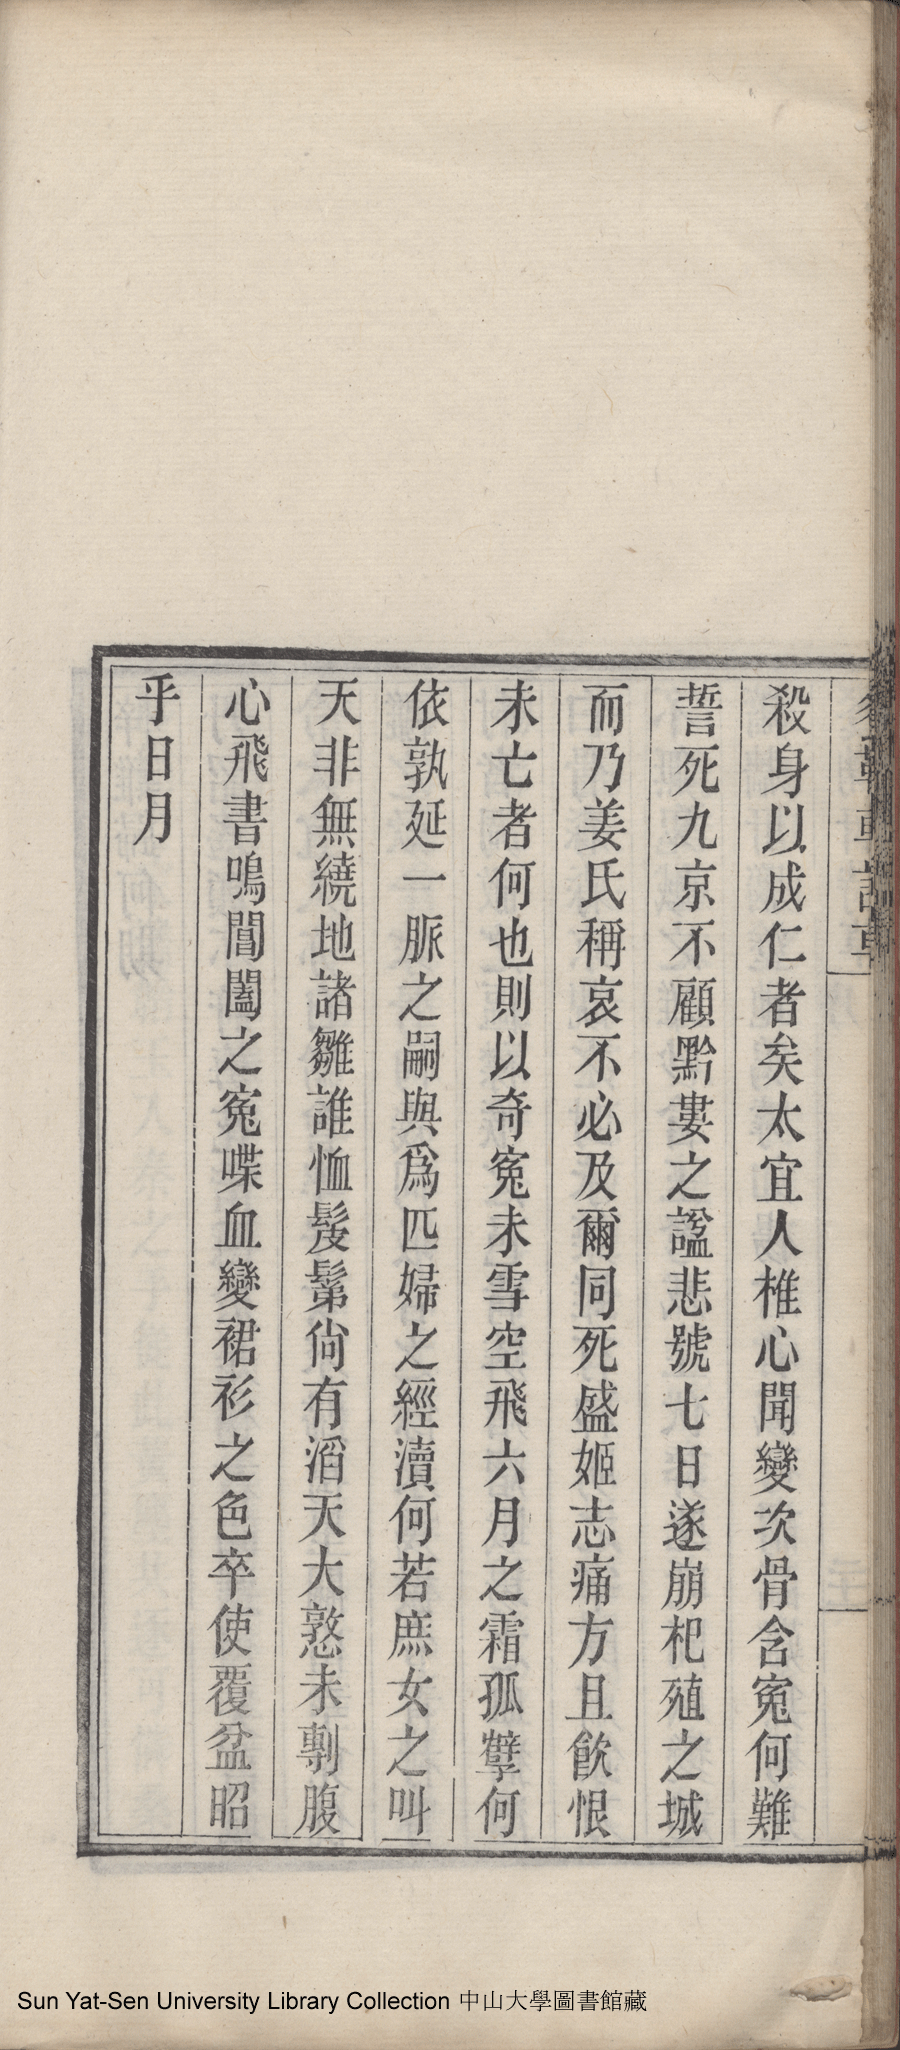 殺身以成仁者矣太宜人椎心聞變次骨含寃何難
誓死九京不顧黔婁之謚悲號七日遂崩杞殖之城
而乃姜氏稱哀不必及爾同死盛姬志痛方且飮恨
未亡者何也則以奇寃未雪空飛六月之霜孤孽何
依孰延一脈之嗣與爲匹婦之經瀆何若庶女之叫
天非無繞地諸雛誰恤髮鬌尙有滔天大憝未剸腹
心飛書鳴閶闔之寃喋血變裙衫之色卒使覆盆昭
乎日月
Sun Yat-Sen University Library Collection 中山大學圖書館藏